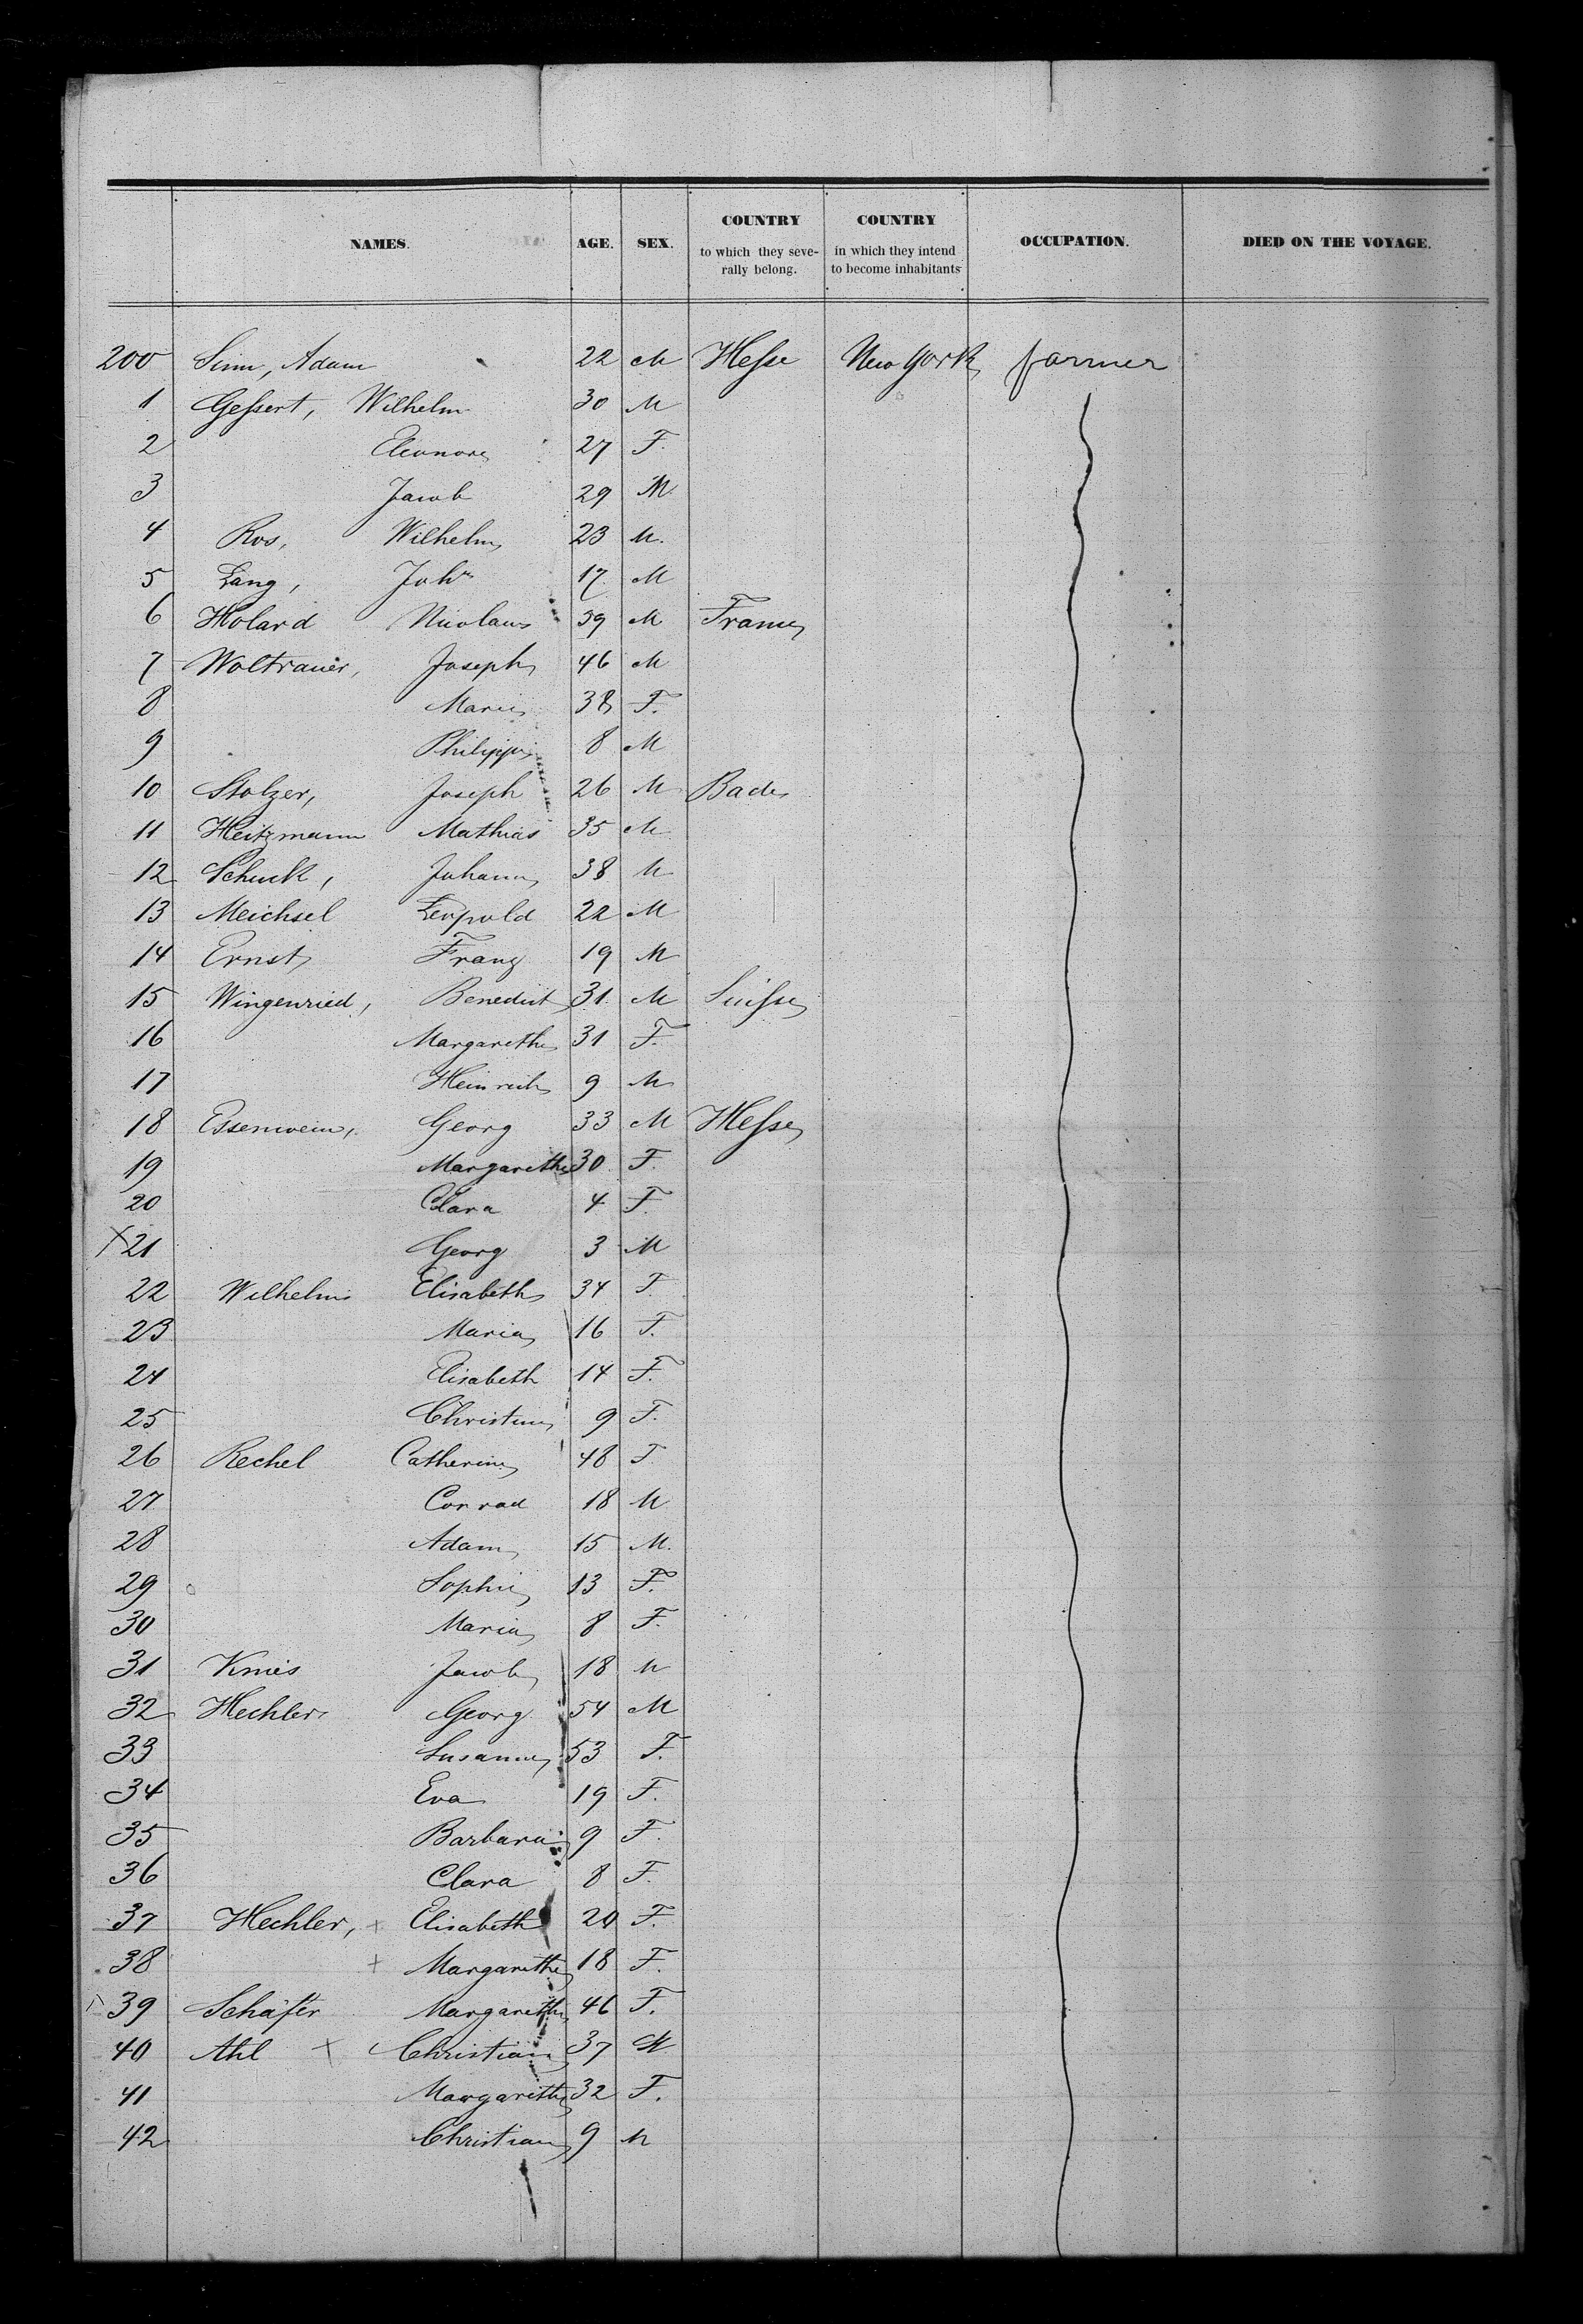 NAMES. AGE. SEX. COUNTRY to which they seve- rally belong. COUNTRY in which they intend to become inhabitants OCCUPATION. DIED ON THE VOYAGE.
200 Sinn, Adam 22 M Hesse New York farmer
1 Gessert, Wilhelm 30 M
2 Eleonore 27 F.
3 Jacob 29 M.
4 Ros, Wilhelm 23 M.
5 Lang, Johⁿ 17 M
6 Holard Nicolaus 39 M France
7 Woltrauer, Joseph 46 M
8 Marie 38 F.
9 Philippe 8 M
10 Stolzer, Joseph 26 M Bade
11 Heitzmann Mathias 35 M
12 Schuck, Johann 38 M
13 Meichsel Leopold 22 M
14 Ernst Franz 19 M
15 Wingenried, Benedict 31 M Suisse
16 Margarethe 31 F.
17 Heinrich 9 M
18 Essenwein, Georg 33 M Hesse
19 Margarethe 30 F.
20 Clara 4 F.
X 21 Georg 3 M
22 Wilhelm Elisabeth 34 F.
23 Maria 16 F.
24 Elisabeth 14 F.
25 Christine 9 F.
26 Rechel Catherine 48 F
27 Conrad 18 M
28 Adam 15 M.
29 Sophie 13 F.
30 Maria 8 F.
31 Kmies Jacob 18 M
32 Hechler Georg 54 M
33 Susanne 53 F.
34 Eva 19 F.
35 Barbara 9 F.
36 Clara 8 F.
37 Hechler, + Elisabeth 20 F.
38 + Margarethe 18 F.
39 Schäfer Margarethe 46 F.
40 Ahl X Christian 37 M
41 Margarethe 32 F.
42 Christian 9 M